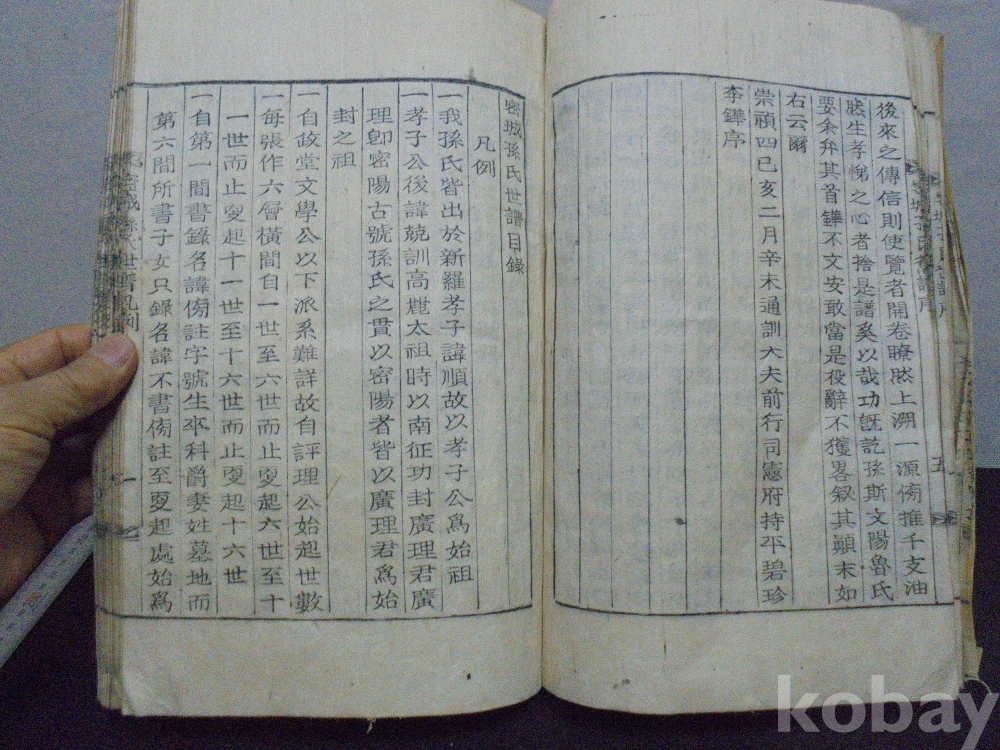 後來之傳信則使覽者開卷瞭然上溯一源傍推千支油
然生孝悌之心者捨是譜奚以哉功旣訖孫斯文陽魯氏
要余弁其首鏵不文安敢當是役辭不獲畧叙其顚末如
右云爾
崇禎四己亥二月辛未通訓大夫前行司憲府持平碧珍
李鏵序
密城孫氏世譜目錄
凡例
一我孫氏皆出於新羅孝子諱順故以孝子公爲始祖
一孝子公後諱兢訓高麗太祖時以南征功封廣理君廣
理卽密陽古號孫氏之貫以密陽者皆以廣理君爲始
封之祖
一自政堂文學公以下派系難詳故自評理公始起世數
一每張作六層橫間自一世至六世而止更起六世至十
一世而止更起十一世至十六世而止更起十六世
一自第一間書錄名諱傍註字號生卒科爵妻姓墓地而
第六間所書子女只錄名諱不書傍註至更起處始爲
密城孫氏世譜凡例
一
五
kobay